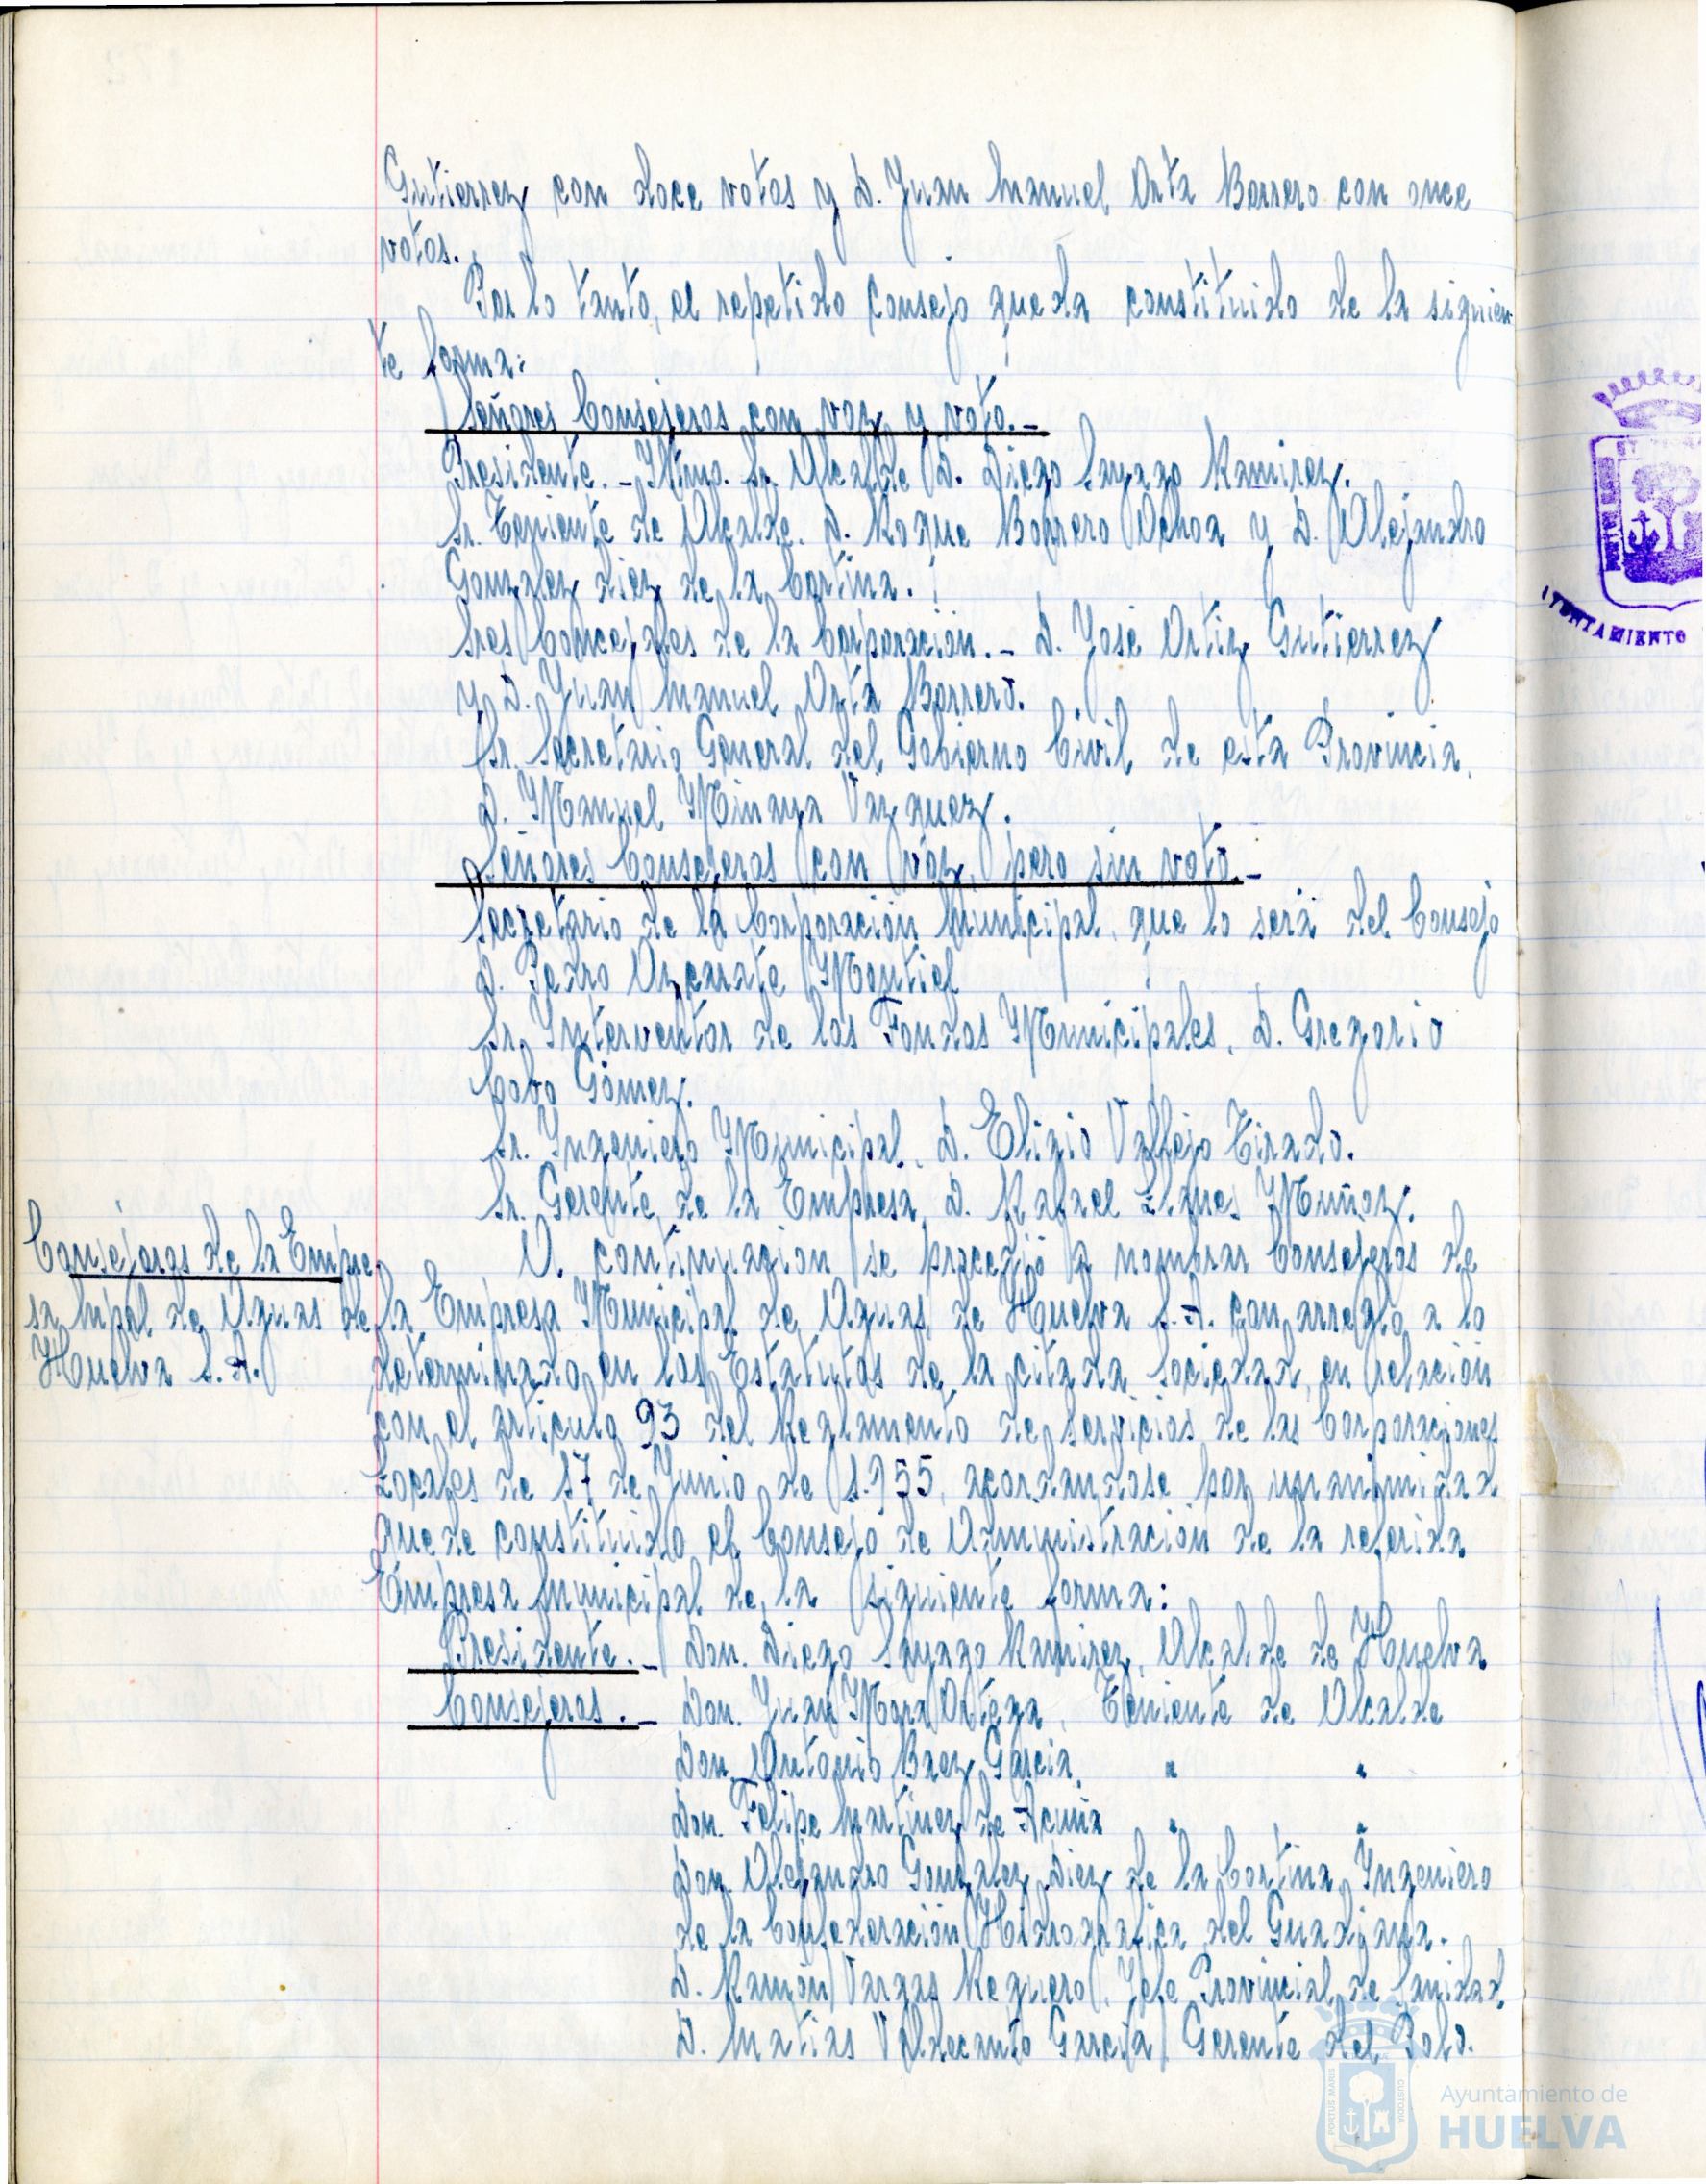 Gutierrez con doce votos y D. Juan Manuel Orta Borrero con once
votos.
Por lo tanto, el repetido Consejo queda constituido de la siguien-
te forma:
Señores Consejeros con voz y voto.-
Presidente.- Iltmo. Sr. Alcalde D. Diego Sayago Ramirez.
Sr. Teniente de Alcalde. D. Roque Borrero Ochoa y D. Alejandro
Gonzalez Diez de la Cortina.
Sres Concejales de la Corporación.- D. José Ortiz Gutierrez
y D. Juan Manuel Orta Borrero.
Sr. Secretario General del Gobierno Civil de esta Provincia,
D. Manuel Minaya Vazquez.
Señores Consejeros con voz, pero sin voto.-
Secretario de la Corporación Municipal, que lo será del Consejo
D. Pedro Azcarate Montiel
Sr. Interventor de los Fondos Municipales, D. Gregorio
Cobo Gómez.
Sr. Ingeniero Municipal, D. Eligio Vallejo Tirado.
Sr. Gerente de la Empresa, D. Rafael Llanes Muñoz.
Consejeros de la Empre-
sa Mpal. de Aguas de
Huelva S.A.
A continuacion se procedió a nombrar Consejeros de
la Empresa Municipal de Aguas de Huelva S.A. con arreglo a lo
determinado en los Estatutos de la citada Sociedad, en relación
con el articulo 93 del Reglamento de Servicios de las Corporaciones
Locales de 17 de Junio de 1.955, acordandose por unanimidad
quede constituido el Consejo de Administración de la referida
Empresa Municipal de la siguiente forma:
Presidente.- Don. Diego Sayago Ramirez, Alcalde de Huelva
Consejeros.- Don. Juan Mora Ortega, Teniente de Alcalde
Don. Antonio Baez Garcia, " "
Don. Felipe Martinez de Acuña " "
Don. Alejandro Gonzalez Diez de la Cortina, Ingeniero
de la Confederación Hidrografica del Guadiana.
D. Ramón Vargas Reguero, Jefe Provincial de Sanidad.
D. Matias Valdecanto García, Gerente del Polo.
AYUNTAMIENTO
PORTUS MARIS
CUSTODIA
Ayuntamiento de
HUELVA